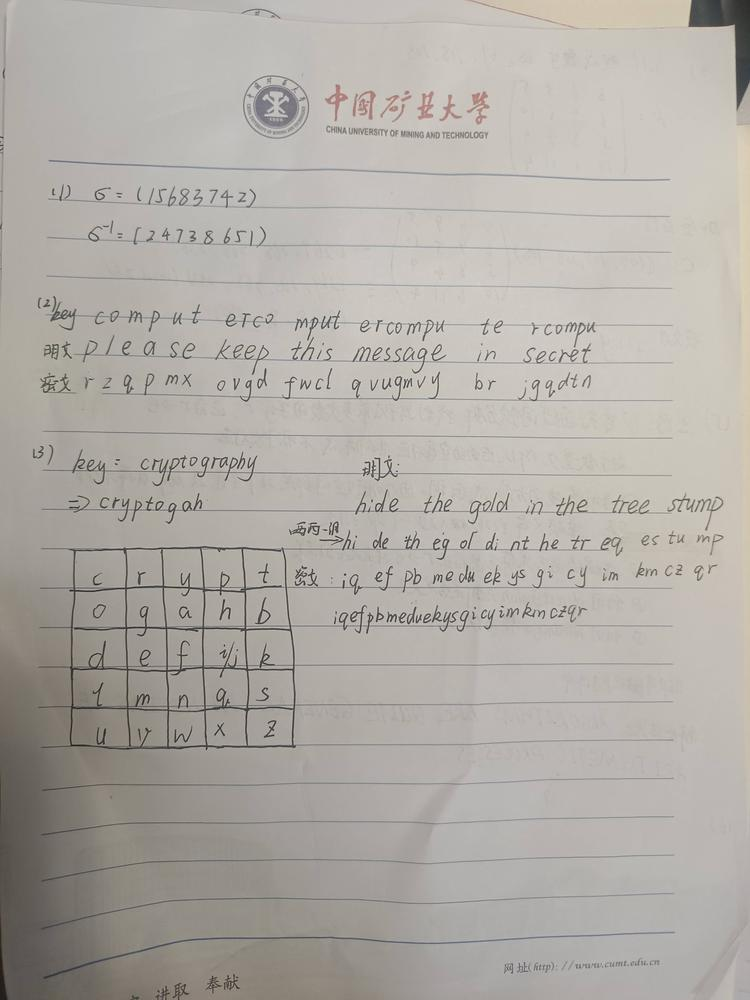 中国矿业大学
CHINA UNIVERSITY OF MINING AND TECHNOLOGY
(1) σ = (15683742)
σ⁻¹ = [24738651)
(2) key comput erco mput ercompu te rcompu
明文 please keep this message in secret
密文 rzqpmx ovgd fwcl qvugmvy br jgqdtn
(3) key = cryptography
⇒ cryptogah
明文:
hide the gold in the tree stump
两两一组 → hi de th eg ol di nt he tr eq es tu mp
密文: iq ef pb me du ek ys gi cy im km cz qr
iqefpbmeduekysgicyimkmczqr
c r y p t
o g a h b
d e f i/j k
l m n q s
u v w x z
网址(http)://www.cumt.edu.cn
进取 奉献